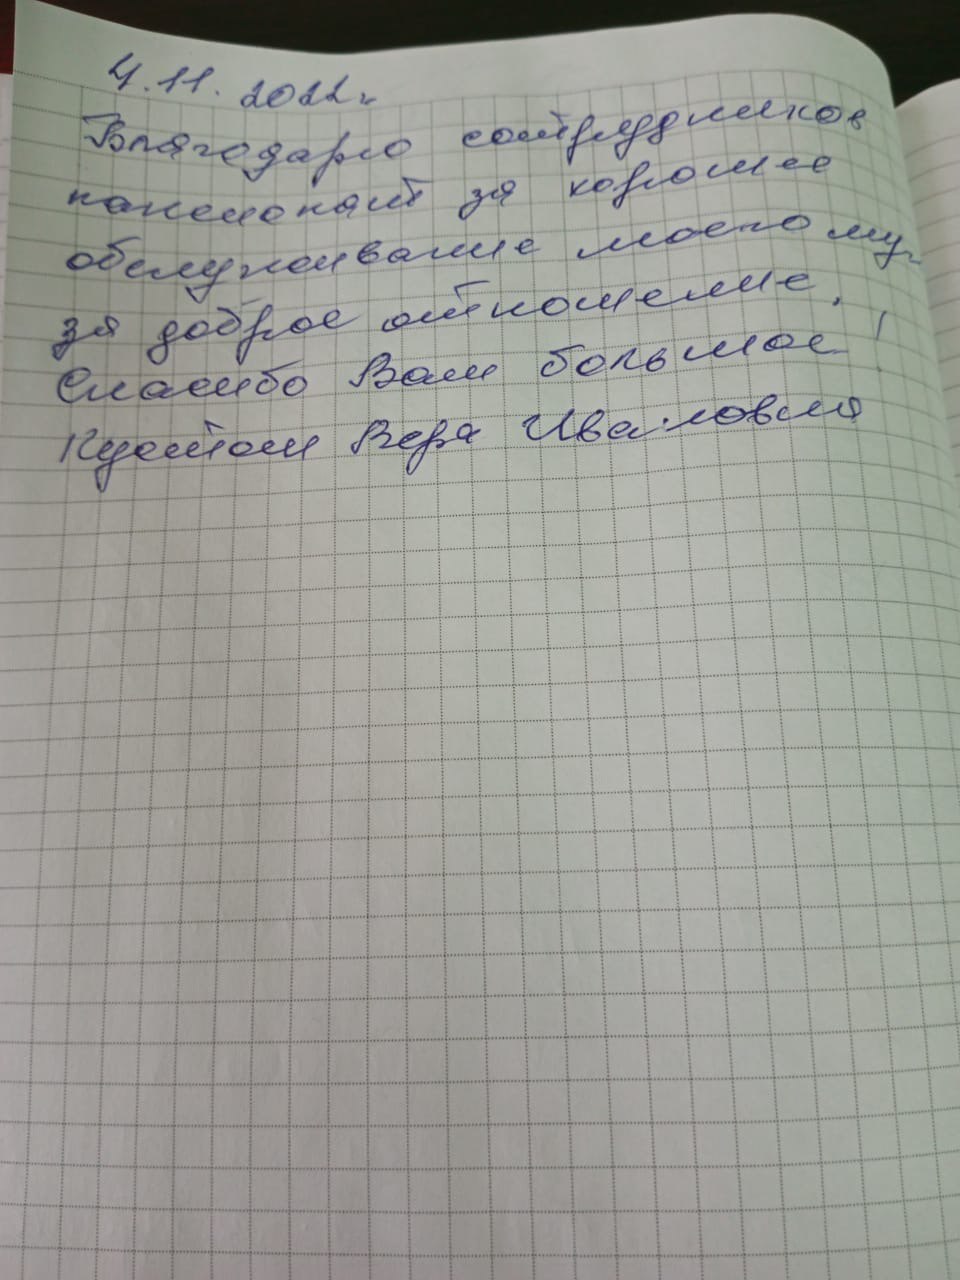 4.11.2022г
Благодарю сотрудников
за хорошее
обслуживание моего му
за доброе отношение.
Спасибо Вам большое!
Вера Ивановна